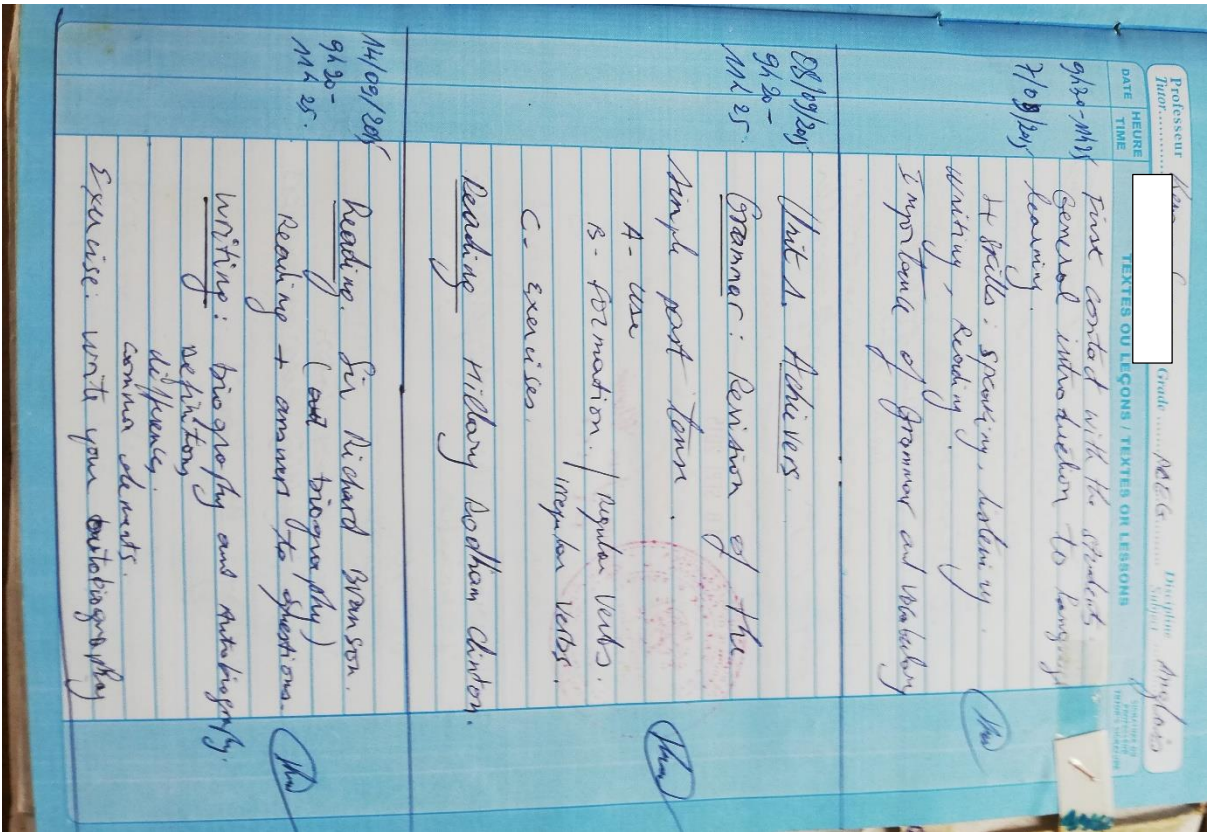 Professeur
Tutor
Grade PCEG
Discipline
Subject Anglais
DATE HEURE TIME TEXTES OU LEÇONS / TEXTES OR LESSONS SIGNATURE DU PROFESSEUR
9h20-11h25 First contact with the students.
General introduction to language
7/09/2015 learning.
4 skills: speaking, listening,
writing, Reading.
Importance of grammar and vocabulary
08/09/2015 Unit 1. Achievers.
9h20-
11h25. Grammar: Revision of the
simple past tense.
A- Use
B- Formation. / Regular verbs.
irregular verbs.
C- Exercises.
Reading Hillary Rodham Clinton.
14/09/2015 Reading. Sir Richard Branson.
9h20- (biography)
11h25. Reading + answers to questions.
Writing: biography and autobiography.
definitions,
difference,
common elements.
Exercise: write your autobiography